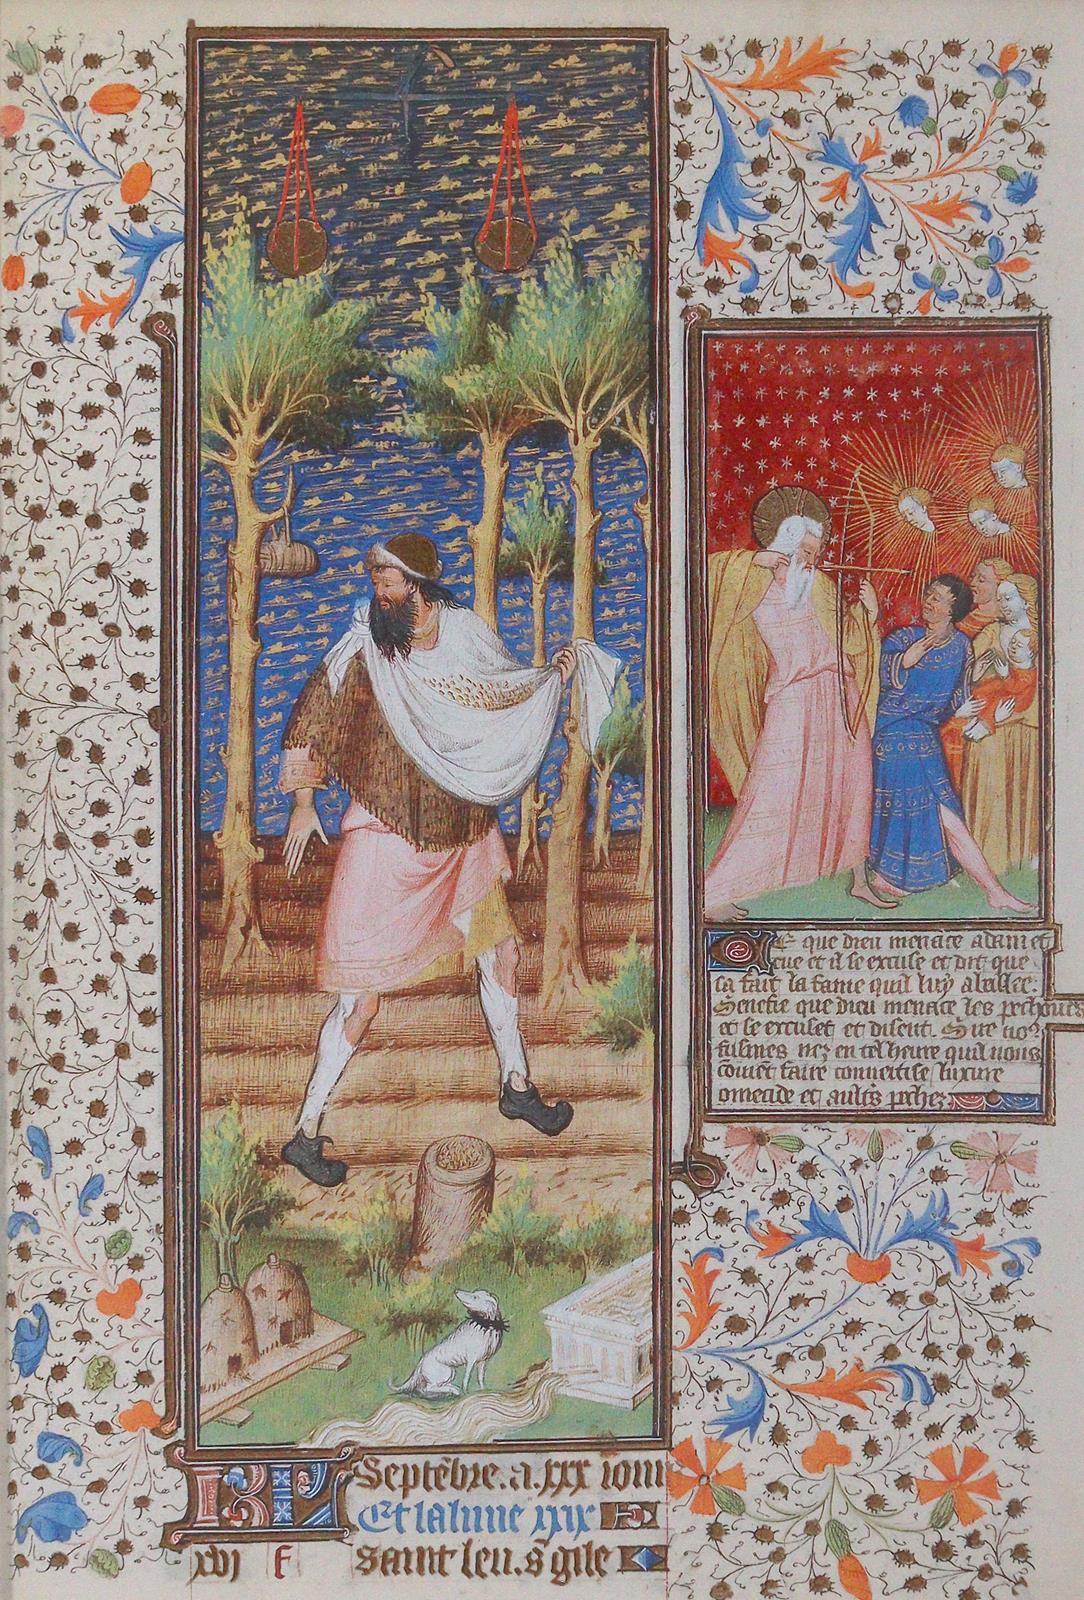 Ce que dieu menace adam et
eve et il se excuse et dit que
ca fait la fame quil luy a baillee.
Senefie que dieu menace les pecheurs
et se excuset et disent. Que no9
fusmes nez en tel heure quil nous
couiet faire couueitise luxure
omecide et aultˢ pechez
KL Septẽbre. a. xxx iours
Et la lune xxix
xvi F saint leu. s̃ gile